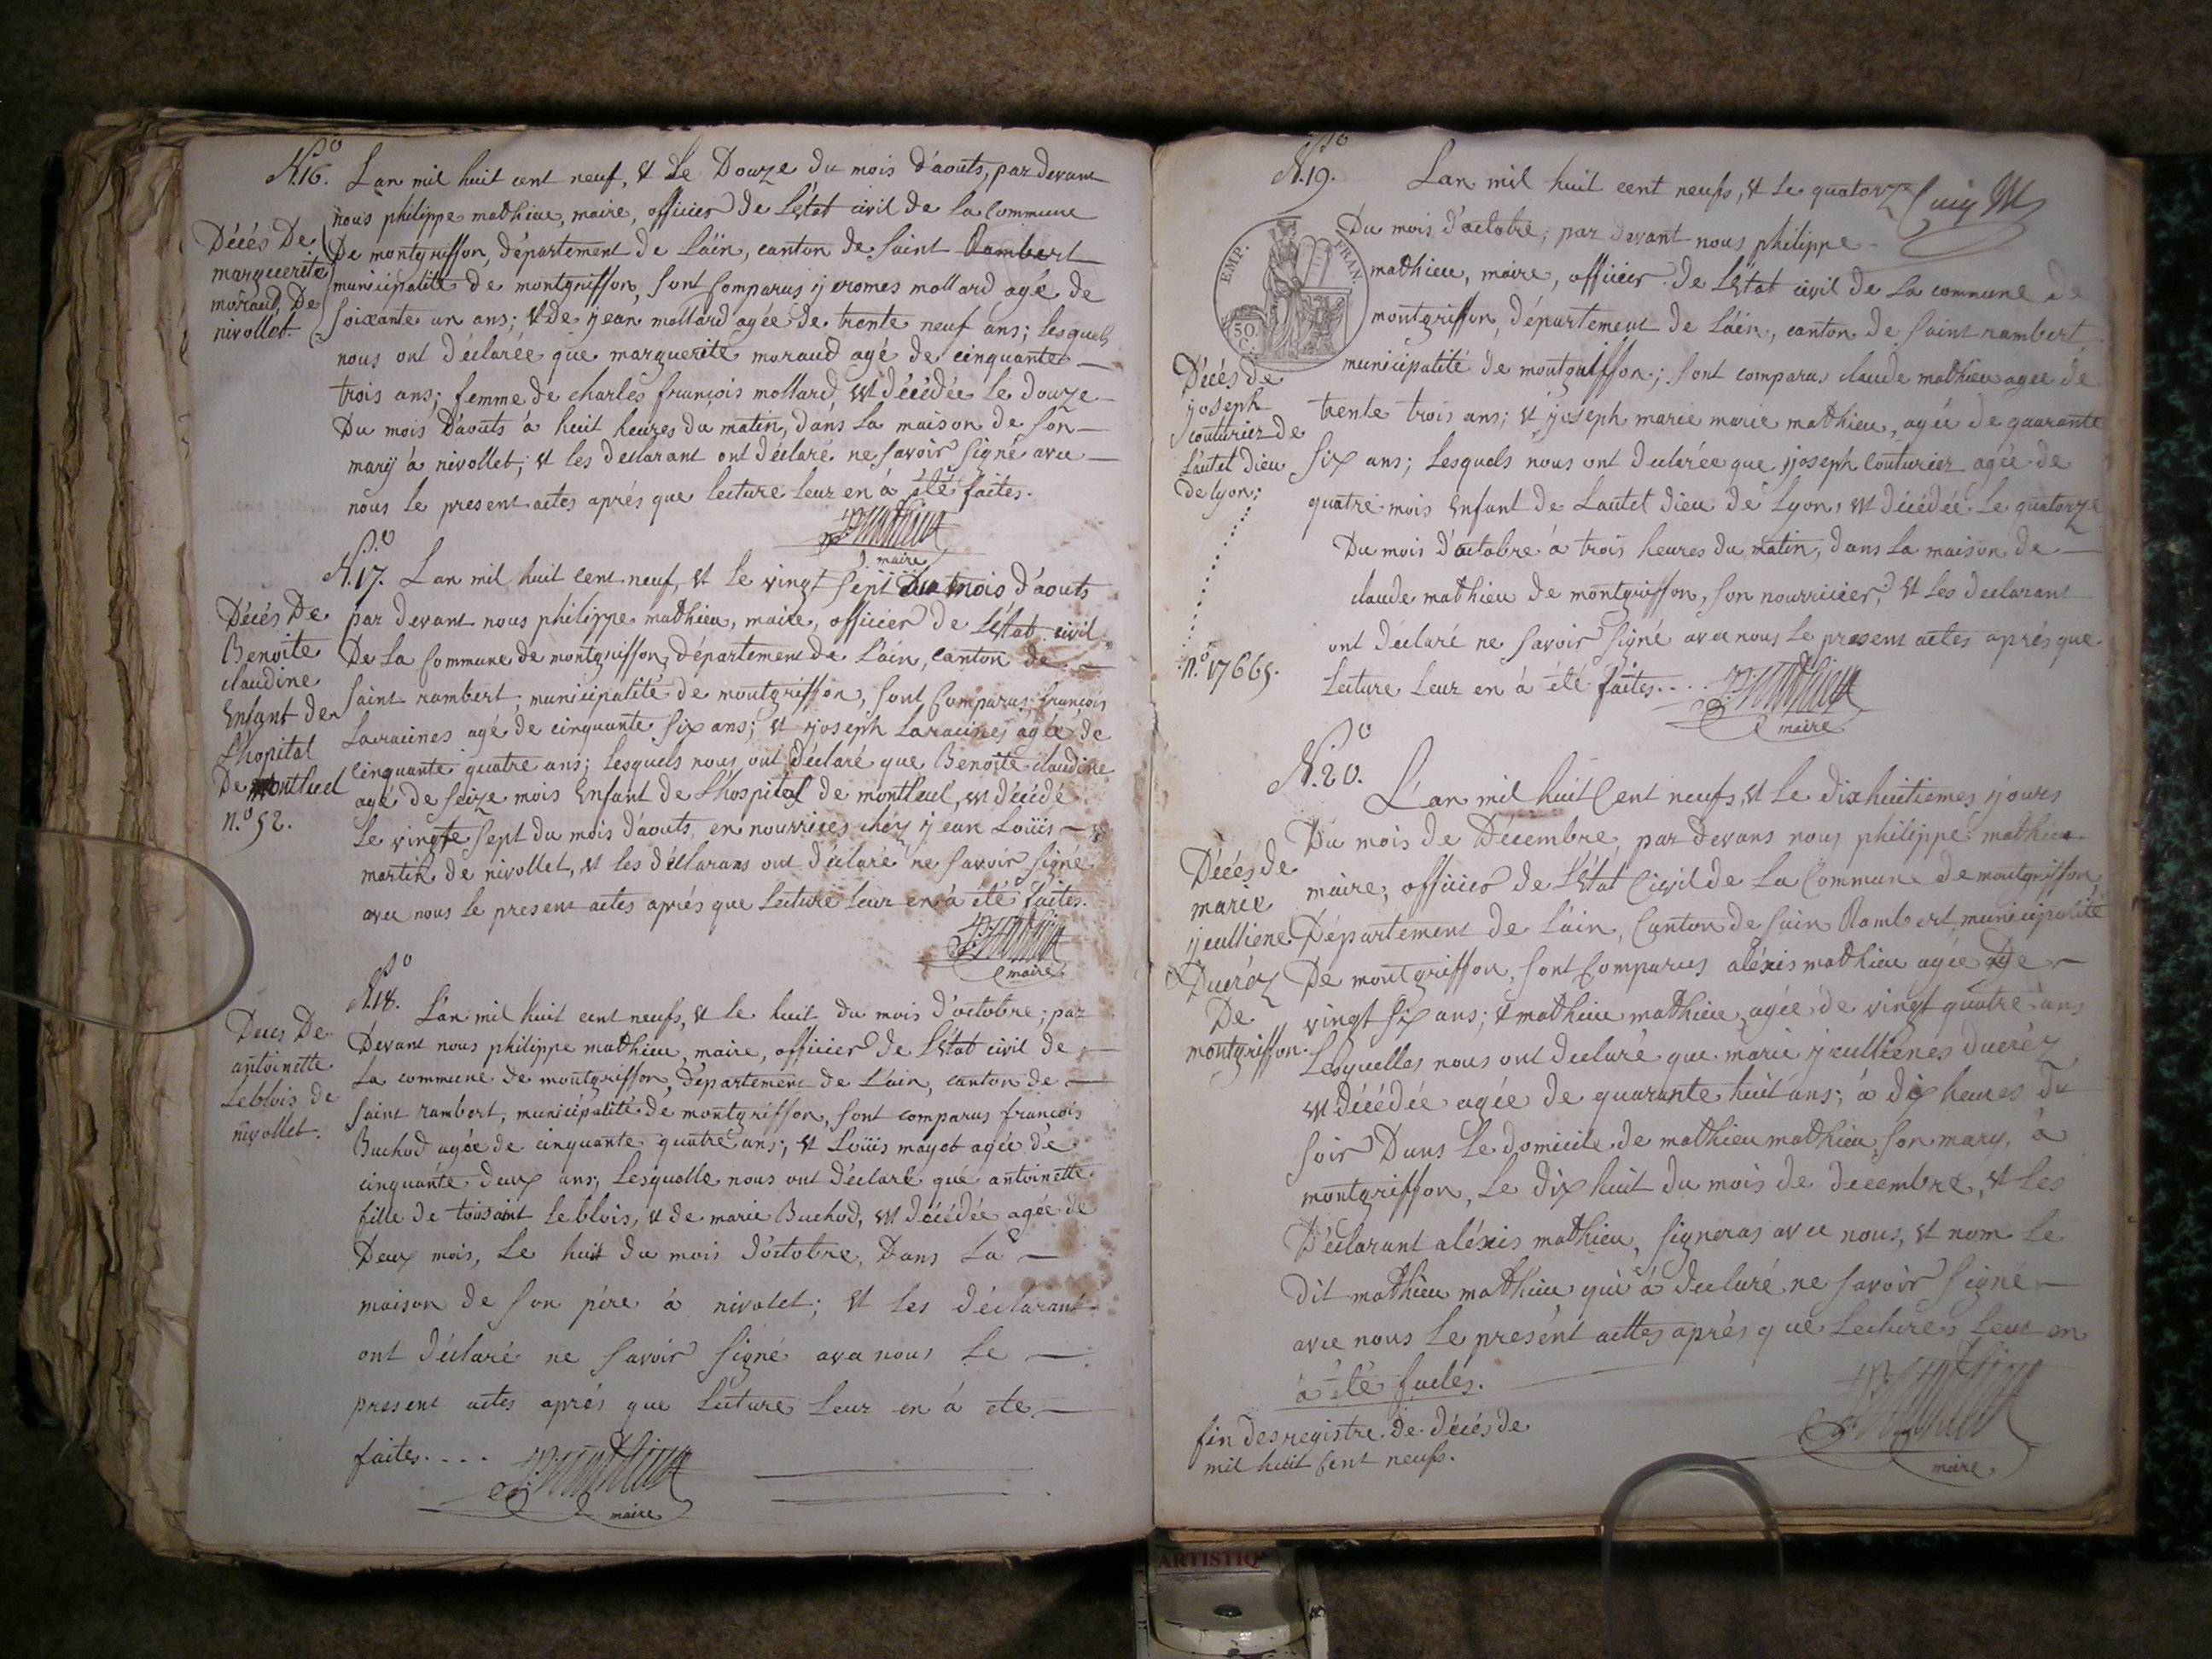 N.o 16. Lan mil huit cent neuf, et le Douze du mois d'aouts, par devant
nous philippe mathieu, maire, officier de L'état civil de La Commune
De montgriffon, département de L'äin, canton de Saint Rambert
municipalité de montgriffon, sont Comparus ijeromes mollard agé de
soixante un ans; et de ijean mollard agée de trente neuf ans; lesquels
nous ont déclarée que marguerite moraud agé de cinquante
trois ans; femme de charles françois mollard, est décédée le douze
Du mois d'aouts à huit heures du matin, dans La maison de son
mary à nivollet; et les declarant ont déclaré ne savoir signé avec
nous le present actes aprés que lecture leur en à été faites.
maire
Décés De
marguerite
moraud, De
nivollet.
N.o 17. Lan mil huit cent neuf, et le vingt sept Du mois d'aouts
par devant nous philippe mathieu, maire, officier de L'état civil
De La Commune de montgriffon, département de L'ain, canton de
saint rambert; municipalité de montgriffon, sont Comparus, françois
Laracines agé de cinquante six ans; et ijoseph Laracines agée de
cinquante quatre ans; lesquels nous ont déclaré que Benoite claudine
agé de seize mois Enfant de L'hospital de montluel, est décédé
Le vingte sept du mois d'aouts, en nourrices chéz ijean Loüis
martin de nivollet, et les déclarans ont déclaré ne savoir signé
avec nous le present actes aprés que Lecture leur en à été faites.
maire
Décés De
Benoite
claudine
Enfant de
L'hopital
De montluel
n.o 52.
N.o 18. L'an mil huit cent neufs, et le huit du mois d'octobre; par
Devant nous philippe mathieu, maire, officier de L'état civil de
La commune de montgriffon, département de L'ain, canton de
saint rambert, municipalité de montgriffon, sont comparus françois
Buchod agée de cinquante quatre ans; et Loüis mayet agée de
cinquante deux ans, Lesquelle nous ont déclaré que antoinette
fille de tousaint Leblois, et de marie Buchod, est décédée agée de
Deux mois, Le huit du mois d'octobre, Dans La
maison de son pére à nivolet; et les déclarant
ont déclaré ne savoir signé avec nous Le
present actes aprés que Lecture Leur en à ete
faites....
maire
Deces De
antoinette
Leblois de
nivollet.
N.o 19. Lan mil huit cent neufs, et le quatorze
Du mois d'octobre, par devant nous philippe
mathieu, maire, officier de L'état civil de La commune de
montgriffon, département de L'äin, canton de saint rambert,
municipalité de montgriffon; sont comparus claude mathieu agee de
trente trois ans; et ijoseph marie marie mathieu, agée de quarante
six ans; Lesquels nous ont declarée que ijoseph Couturier agée de
quatre mois Enfant de Lautel dieu de Lyon, est décédée le quatorze
Du mois d'octobre à trois heures du matin, dans La maison de
claude mathieu de montgriffon, son nourricier, et Les declarant
ont déclaré ne savoir signé avec nous Le present actes aprés que
Lecture Leur en à été faites....
maire
EMP. FRAN.
50.
C.
Décés de
ijoseph
couturier de
L'autel dieu
de lyon;
n.o 17665.
N.o 20. L'an mil huit Cent neufs, et le dixhuitiemes ijours
Du mois de Décembre, par devans nous philippe mathieu
maire, officier de L'état Civil de La Commune de montgriffon
Département de L'ain, Canton de sain Rambert, municipalité
De montgriffon, sont Comparus aléxis mathieu agée de
vingt six ans; et mathieu mathieu, agée de vingt quatre ans
Lesquelles nous ont declaré que marie ijeullienes Ducréz
est décédée agée de quarante huit ans; à dix heures du
soir Dans Le domicile de mathieu mathieu, son mary, à
montgriffon, Le dix huit du mois de decembre, et les
Déclarant aléxis mathieu, signeras avec nous, et nom le
dit mathieu mathieu qui à declaré ne savoir signé
avec nous Le presént acttes aprés que Lectures leur en
à été faites.
maire
Décés de
marie
ijeulliene
Ducréz
De
montgriffon.
fin des registre de décés de
mil huit Cent neufs.
ARTISTIQ